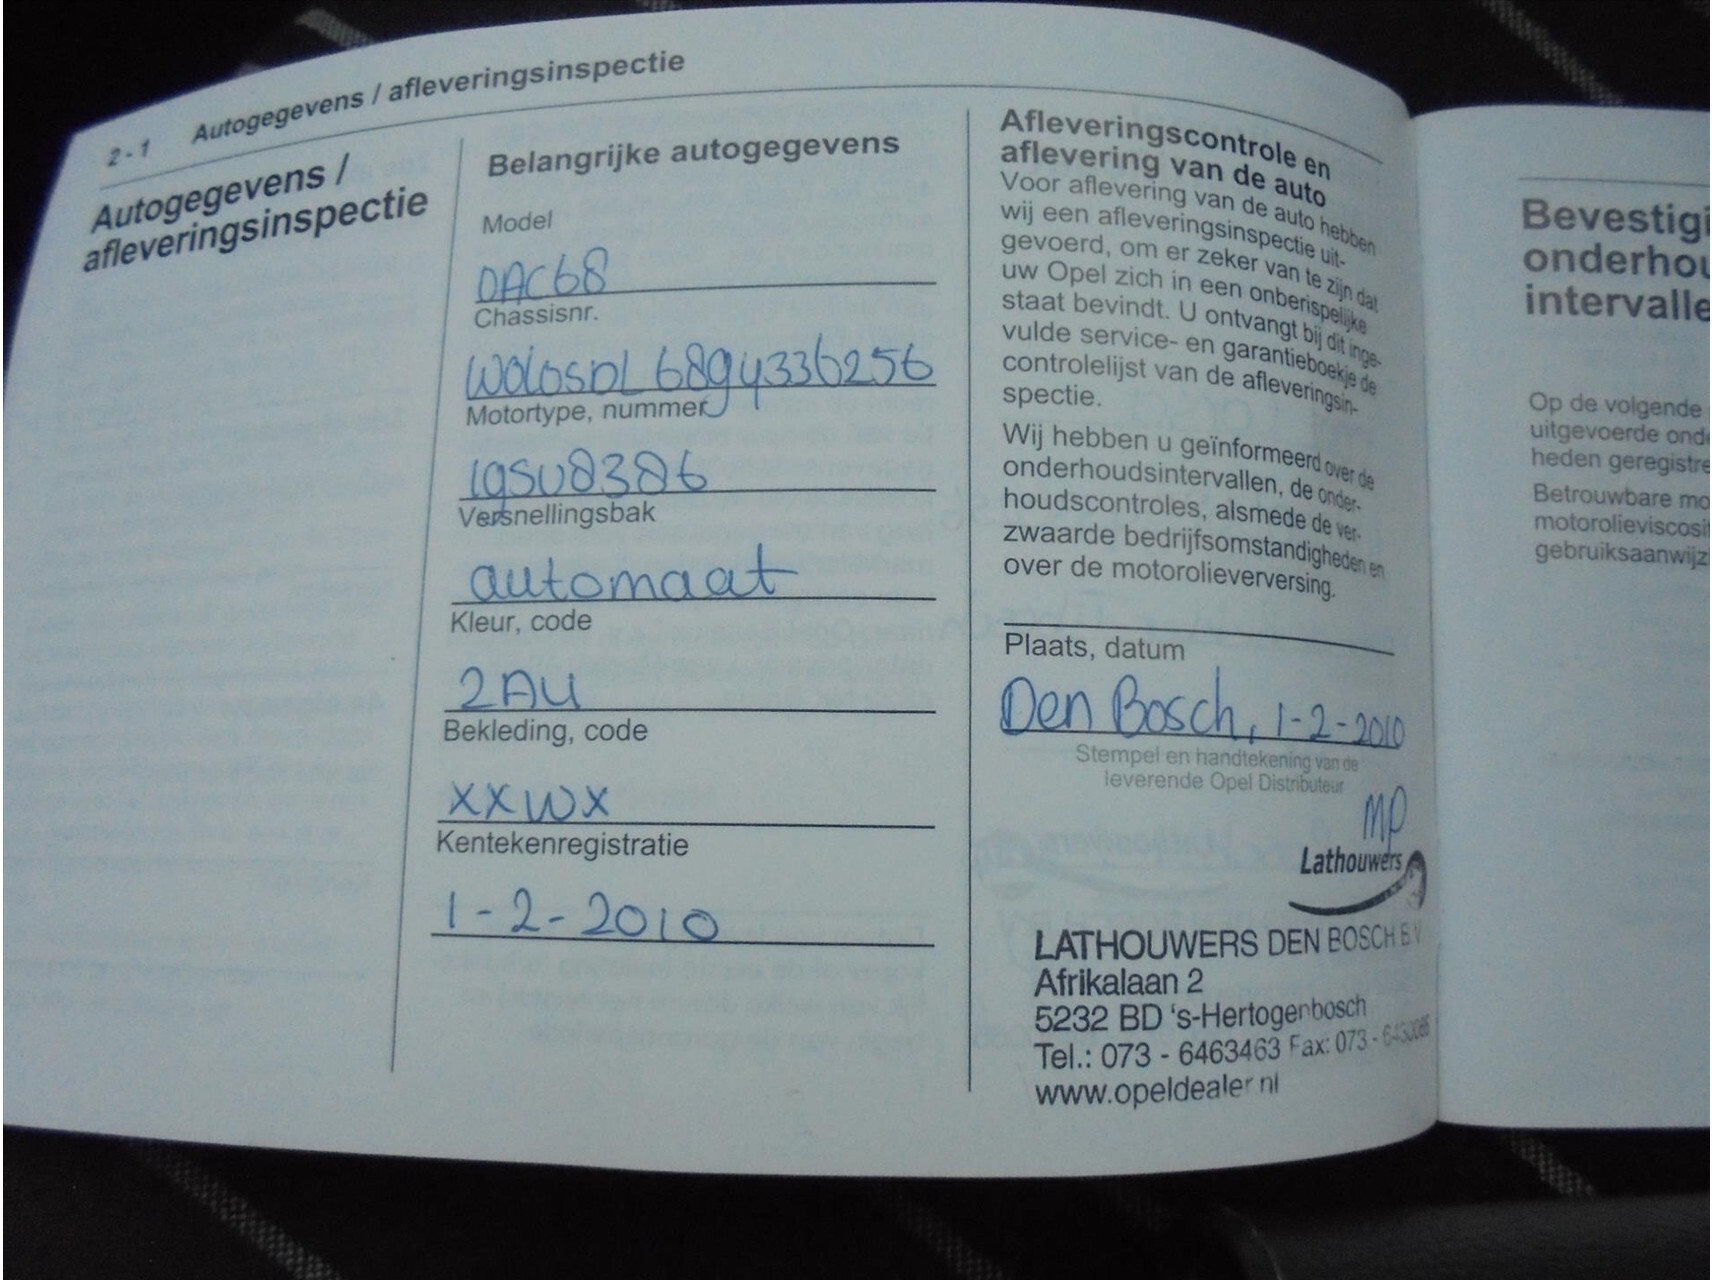 2-1 Autogegevens / afleveringsinspectie
Autogegevens /
afleveringsinspectie
Belangrijke autogegevens
Model
0AC68
Chassisnr.
W0L0SDL6894336256
Motortype, nummer
19SU8386
Versnellingsbak
automaat
Kleur, code
2AU
Bekleding, code
XXWX
Kentekenregistratie
1-2-2010
Afleveringscontrole en
aflevering van de auto
Voor aflevering van de auto hebben
wij een afleveringsinspectie uit-
gevoerd, om er zeker van te zijn dat
uw Opel zich in een onberispelijke
staat bevindt. U ontvangt bij dit inge-
vulde service- en garantieboekje de
controlelijst van de afleveringsin-
spectie.
Wij hebben u geïnformeerd over de
onderhoudsintervallen, de onder-
houdscontroles, alsmede de ver-
zwaarde bedrijfsomstandigheden en
over de motorolieverversing.
Plaats, datum
Den Bosch, 1-2-2010
Stempel en handtekening van de
leverende Opel Distributeur
MP
Lathouwers
LATHOUWERS DEN BOSCH B.V.
Afrikalaan 2
5232 BD 's-Hertogenbosch
Tel.: 073 - 6463463 Fax: 073 -
www.opeldealer.nl
Bevestigi
onderhou
intervalle
Op de volgende
uitgevoerde onde
heden geregistre
Betrouwbare mo
motorolieviscosit
gebruiksaanwijz